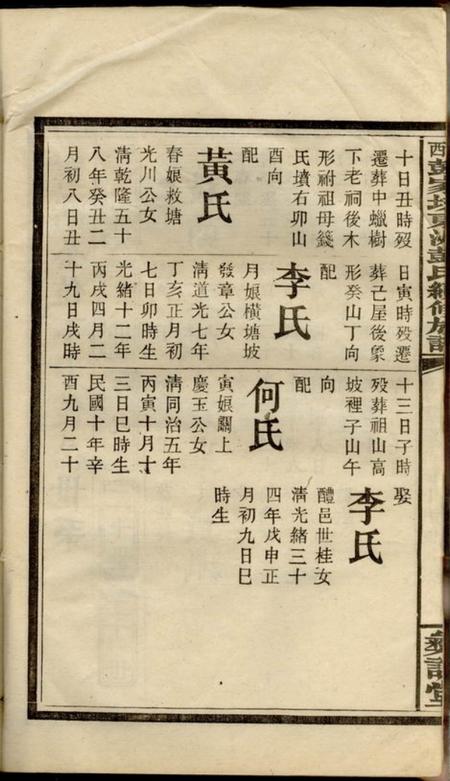 十日丑時歿
遷葬中蠟樹
下老祠後木
形祔祖母錢
氏墳右卯山
酉向
配
黃氏
春娘救塘
光川公女
清乾隆五十
八年癸丑二
月初八日丑
日寅時歿遷
葬亡屋後象
形癸山丁向
配
李氏
月娘橫塘坡
發章公女
清道光七年
丁亥正月初
七日卯時生
光緒十二年
丙戌四月二
十九日戌時
十三日子時
歿葬祖山高
坡裡子山午
向
配
何氏
寅娘關上
慶玉公女
清同治五年
丙寅十月十
三日巳時生
民國十年辛
酉九月二十
娶
李氏
醴邑世桂女
清光緒三十
四年戊申正
月初九日巳
時生
彭氏續修族譜
彝訓堂